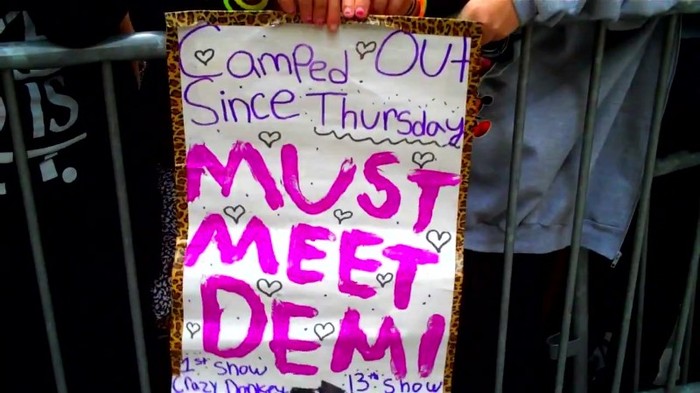 Camped Out
Since Thursday
MUST
MEET
DEMI
1st Show
Crazy Donkey 13th Show
IS